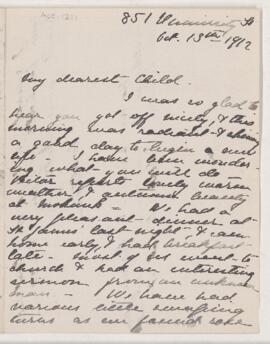 851 University St
Oct. 13th 1912
My dearest Child.
I was so glad to
hear you got off nicely, & this
morning was radiant & 
a good day to begin a new
life. I have been wonder
ing what you will do
Victor reports lovely warm
weather & autumn beauty
at 
We had a
very pleasant dinner at
St James' last night & came
home early & had breakfast
late. most of us went to
church & had an interesting
sermon from an unknown
man. We have had
various little 
turns as